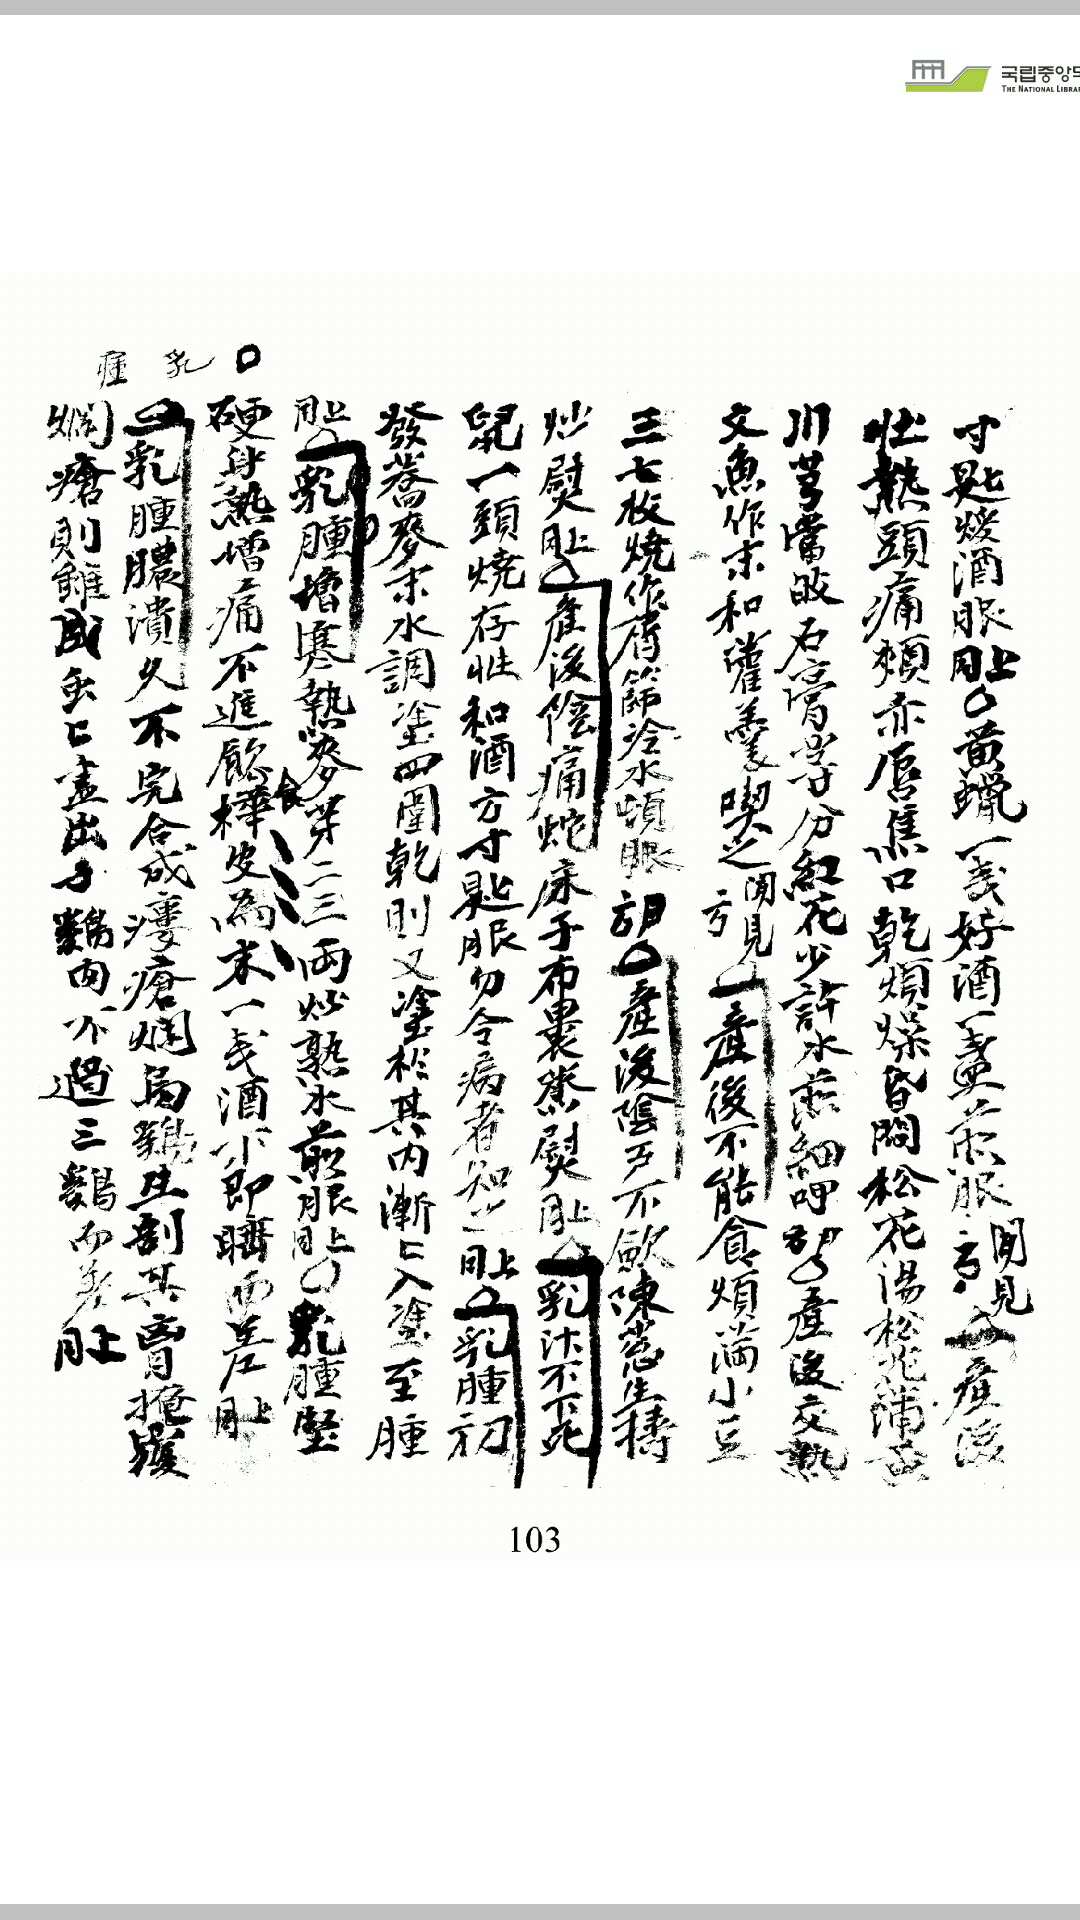 국립중앙도
THE NATIONAL LIBRAR
寸匙煖酒服 〇黃蠟一戔好酒一盞煎服 聞見方 産後
壯熱頭痛頰赤唇焦口乾煩燥昏悶松花湯松花蒲黃
川芎當 石膏等分紅花少許水煎細呷 〇産後交熱
文魚作末和藿羹喫之 聞見方 産後不能食煩滿小豆
三七枚燒作屑篩冷水頓服 〇産後陰 不 陳葱生搗
炒熨 産後陰痛蛇床子布裹蒸熨 乳汁不下死
鼠一頭燒存性和酒方寸匙服勿令病者知之 乳腫初
發蕎麥末水調塗四圍乾則又塗於其內漸〻入塗至腫
乳腫增寒熱麥芽二三兩炒熟水煎服 〇乳腫堅
硬身熱增痛不進飮食樺皮為末一戔酒下即 而差
乳腫膿潰久不完合成瘻瘡爛烏鷄生割其 掩 
爛瘡則雖 虫〻盡出 鷄肉不過三鷄而差
〇乳 腫
103